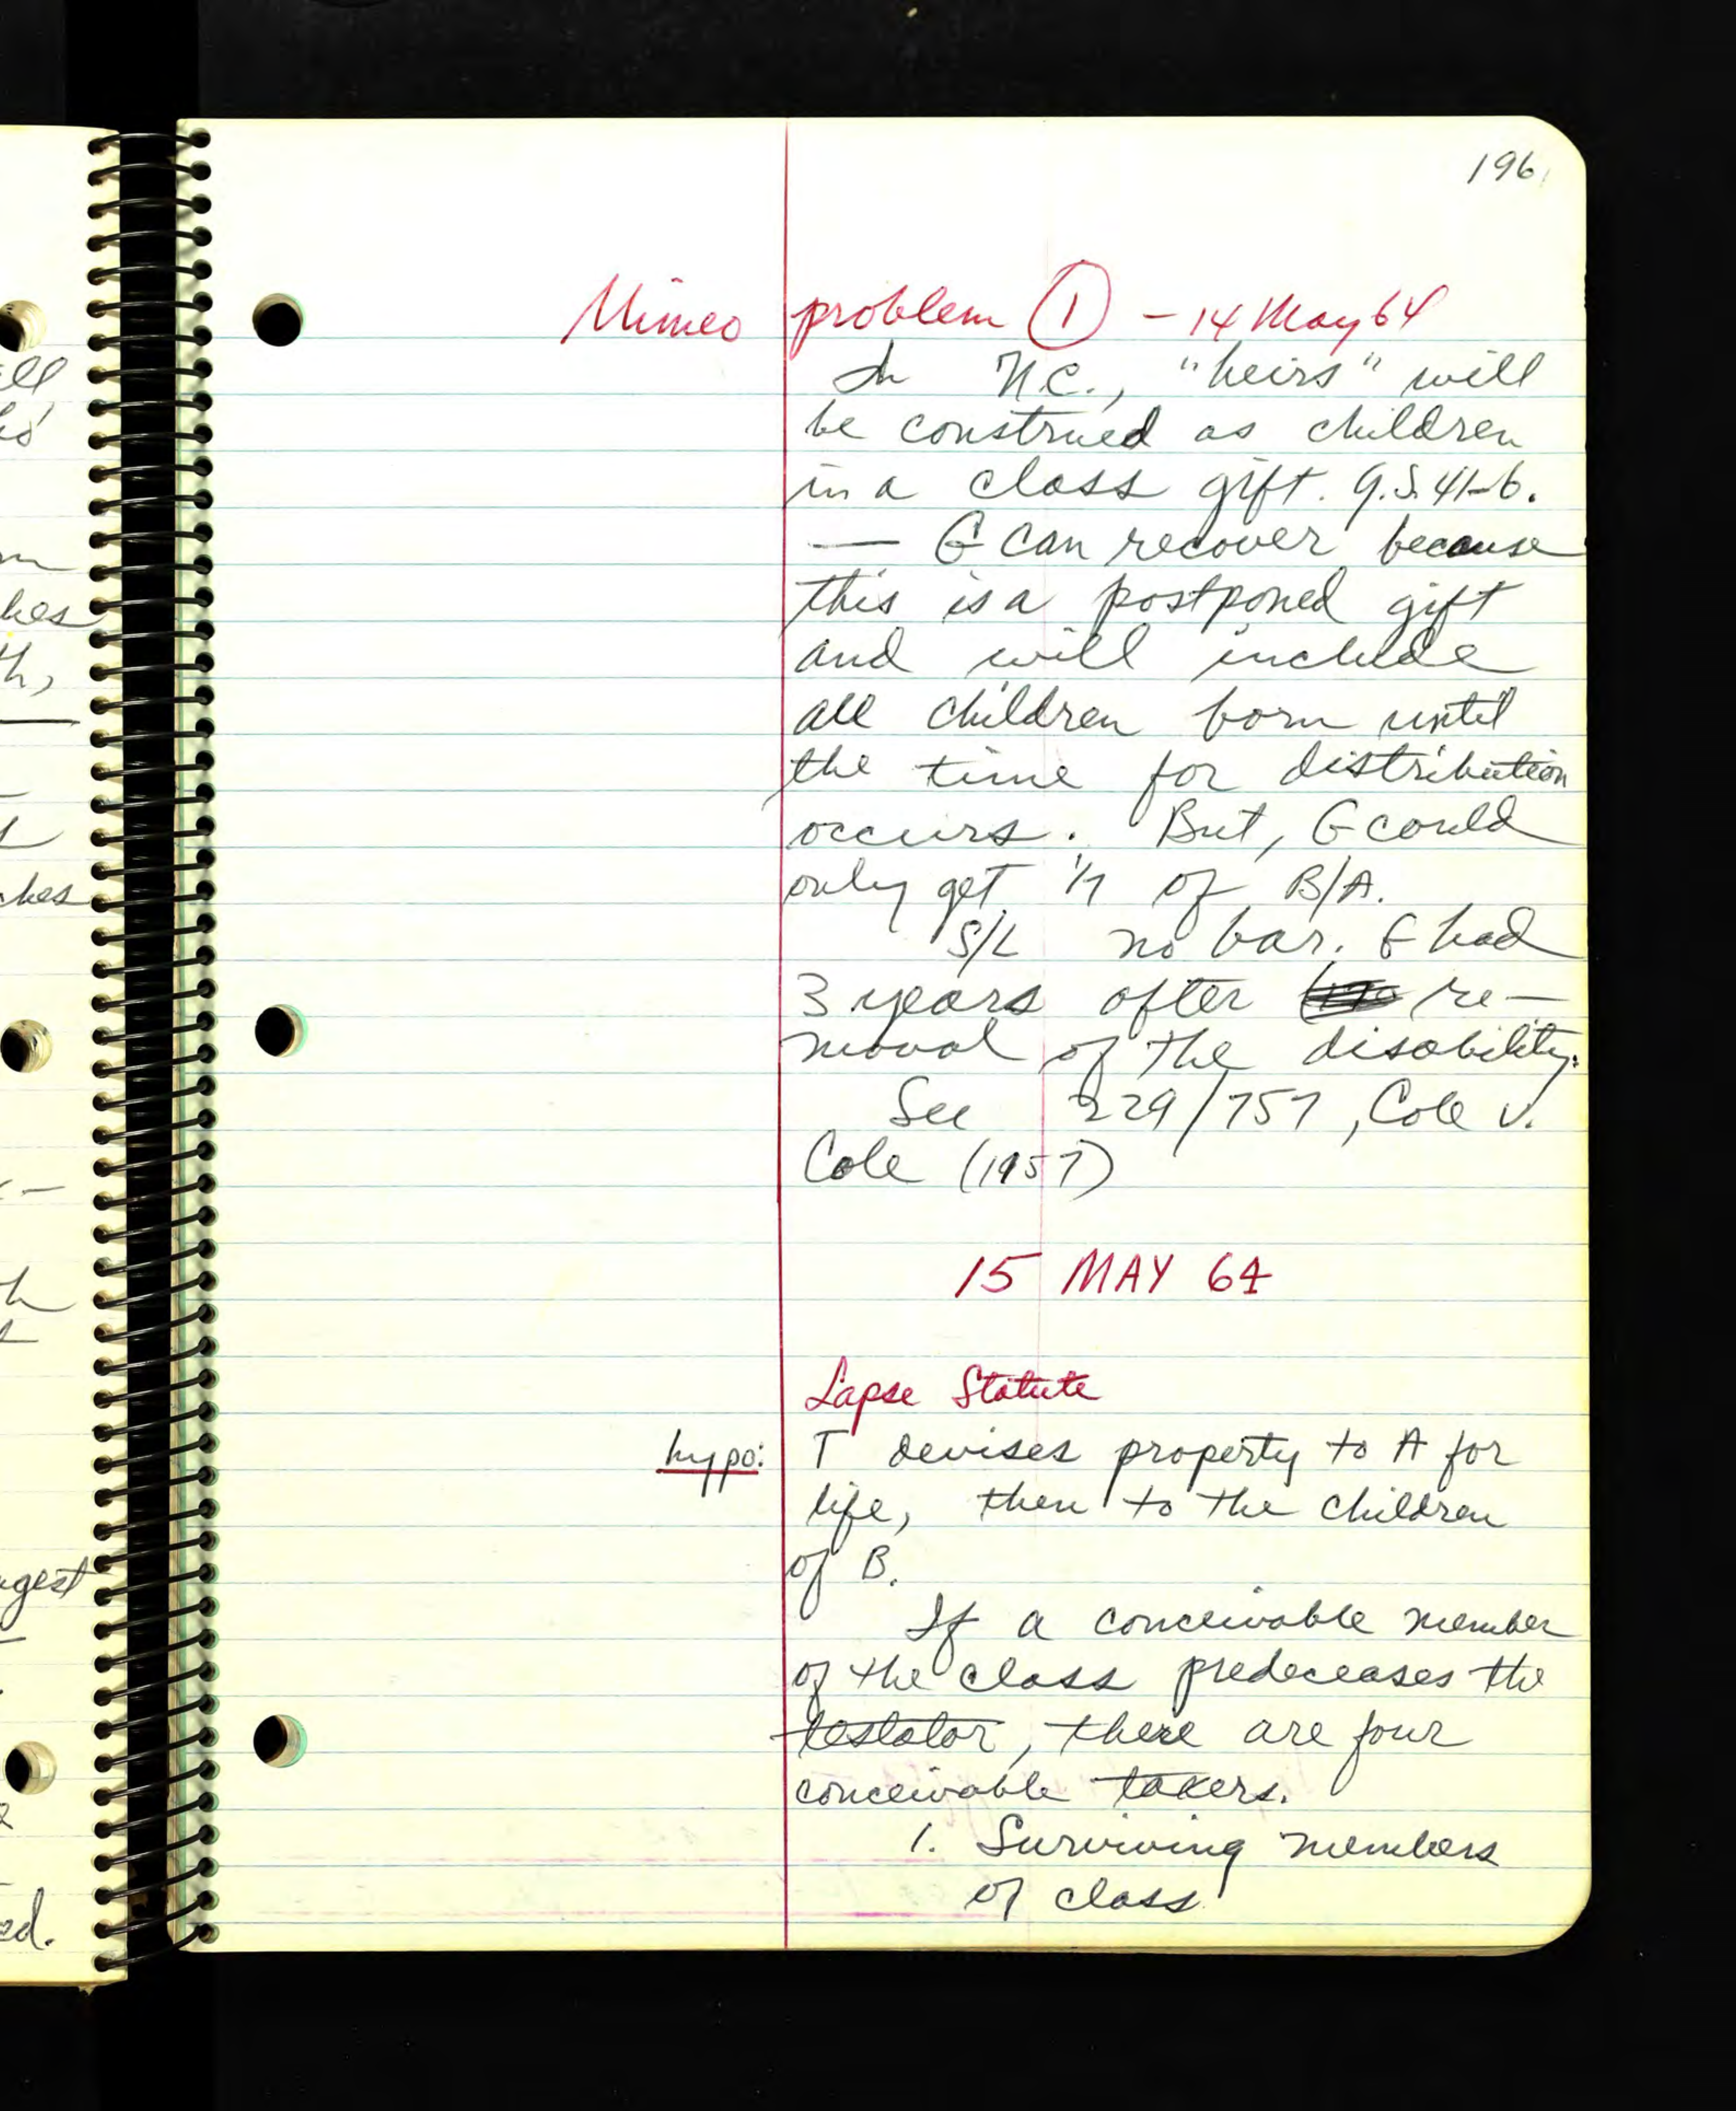 196
Mimeo problem ① - 14 May 64
In N.C., "heirs" will
be construed as children
in a class gift. G.S. 41-6.
— G can recover because
this is a postponed gift
and will include
all children born until
the time for distribution
occurs. But, G could
only get 1/7 of B/A.
S/L no bar. G had
3 years after re-
moval of the disability.
See 229/757, Cole v.
Cole (1957)
15 MAY 64
Lapse Statute
hypo: T devises property to A for
life, then to the children
of B.
If a conceivable member
of the class predeceases the
testator, there are four
conceivable takers.
1. Surviving members
of class
ll
m
hes
th,
ches
h
gest
ed.